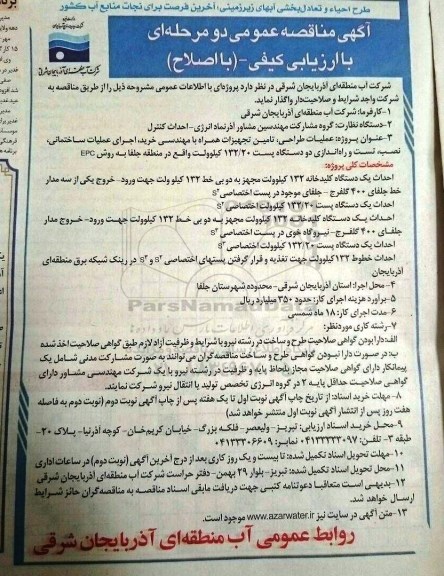 طرح احیاء و تعادل‌بخشی آبهای زیرزمینی، آخرین فرصت برای نجات منابع آب کشور
آگهی مناقصه عمومی دو مرحله‌ای
با ارزیابی کیفی - (با اصلاح)
شرکت آب منطقه‌ای آذربایجان شرقی در نظر دارد پروژه‌ای با اطلاعات عمومی مشروحه ذیل را از طریق مناقصه به
شرکت واجد شرایط و صلاحیت‌دار واگذار نماید.
۱-کارفرما: شرکت آب منطقه‌ای آذربایجان شرقی
۲-دستگاه نظارت: گروه مشارکت مهندسین مشاور آذرنماد انرژی-احداث کنترل
۳-عنوان پروژه: عملیات طراحی، تامین تجهیزات همراه با مهندسی خرید، اجرای عملیات ساختمانی،
نصب، تست و راه‌اندازی دو دستگاه پست ۱۳۲/۲۰ کیلوولت واقع در منطقه جلفا به روش EPC
مشخصات کلی پروژه:
احداث یک دستگاه کلیدخانه ۱۳۲ کیلوولت مجهز به دو بی خط ۱۳۲ کیلوولت جهت ورود-خروج یکی از سه مدار
خط جلفای ۴۰۰ گلفرج - جلفای موجود در پست اختصاصی
احداث یک دستگاه پست ۱۳۲/۲۰ کیلوولت اختصاصی
احداث یک دستگاه کلیدخانه ۱۳۲ کیلوولت مجهز به دو بی خط ۱۳۲ کیلوولت جهت ورود-خروج مدار
جلفای ۴۰۰ گلفرج-نیروگاه خوی در پست اختصاصی
احداث یک دستگاه پست ۱۳۲/۲۰ کیلوولت اختصاصی
احداث خطوط ۱۳۲ کیلوولت جهت تغذیه و قرار گرفتن پستهای اختصاصی و در رینگ شبکه برق منطقه‌ای
آذربایجان
۴-محل اجرا: استان آذربایجان شرقی-محدوده شهرستان جلفا
۵-برآورد هزینه اجرای کار: حدود ۳۵۰ میلیارد ریال
۶-مدت اجرای کار: ۱۸ ماه شمسی
۷-رشته کاری موردنظر:
الف: دارا بودن گواهی صلاحیت طرح و ساخت در رشته نیرو با شرایط و ظرفیت آزاد لازم طبق گواهی صلاحیت اخذ شده
ب: در صورت دارا نبودن گواهی طرح و ساخت مناقصه‌گران می‌توانند به صورت مشارکت مدنی شامل یک
پیمانکار دارای گواهی صلاحیت مجاز بلحاظ پایه و ظرفیت در رشته نیرو با یک شرکت مهندسی مشاور دارای
گواهی صلاحیت حداقل پایه ۲ در گروه انرژی تخصص تولید یا انتقال نیرو شرکت نمایند.
۸-مهلت خرید اسناد: از تاریخ چاپ آگهی نوبت اول تا یک هفته پس از چاپ آگهی نوبت دوم (نوبت دوم به فاصله
هفت روز پس از انتشار آگهی نوبت اول منتشر خواهد شد)
۹-محل خرید اسناد ارزیابی: تبریز-ولیعصر-فلکه بزرگ-خیابان کریم‌خان-کوچه آذرنیا-پلاک ۳۰-
طبقه ۳-تلفن: ۰۴۱۳۳۳۳۳۰۹۷ نمابر: ۰۴۱۳۳۳۰۶۶۰۹
۱۰-مهلت تحویل اسناد تکمیل شده: تا بیست و یک روز کاری بعد از درج آخرین آگهی (نوبت دوم) در ساعات اداری
۱۱-محل تحویل اسناد تکمیل شده: تبریز-بلوار ۲۹ بهمن-دفتر حراست شرکت آب منطقه‌ای آذربایجان شرقی
۱۲-بدیهی است متعاقبا دعوتنامه کتبی جهت دریافت مابقی اسناد مناقصه به مناقصه‌گران حائز شرایط
ارسال خواهد شد.
۱۳-متن آگهی در سایت نیز www.azarwater.ir موجود است.
روابط عمومی آب منطقه‌ای آذربایجان شرقی